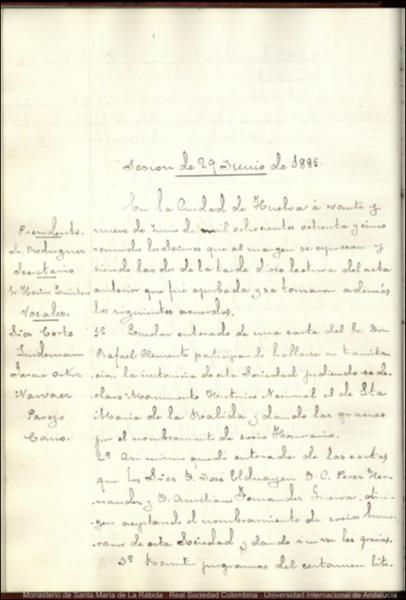 Sesion de 29 Junio de 1885.
En la Ciudad de Huelva á veinte y
nueve de Junio de mil ochocientos ochenta y cinco
reunidos los Señores que al margen se expresan y
siendo las dos de la tarde dióse lectura del acta
anterior que fué aprobada y se tomaron además
los siguientes acuerdos.
Presidente.
Sr. Rodriguez
Secretario
Sr. Hern Quintero
Vocales.
Diaz Corto
Sundemann
Garcia Ortiz
Narvaez
Parejo
Cano.
1º Quedar enterado de una carta del Sr. Don
Rafael Clemente participando hallarse en tramita
cion la instancia de esta Sociedad pidiendo se de
clare Monumento Historico Nacional el de Sta
Maria de la Rabida y dando las gracias
por el nombramient de socio Honorario.
2º Asi mismo quedó enterada de las cartas
que los Sres D. José Elduayen D. C. Perez Her
nandez y D. Aureliano Fernandez Guerra, diri
gen aceptando el nombramiento de socios hono
rarios de esta Sociedad y dando a su vez las gracias.
3º Remitir programas del certamen lite
Monasterio de Santa María de La Rábida . Real Sociedad Colombina . Universidad Internacional de Andalucía